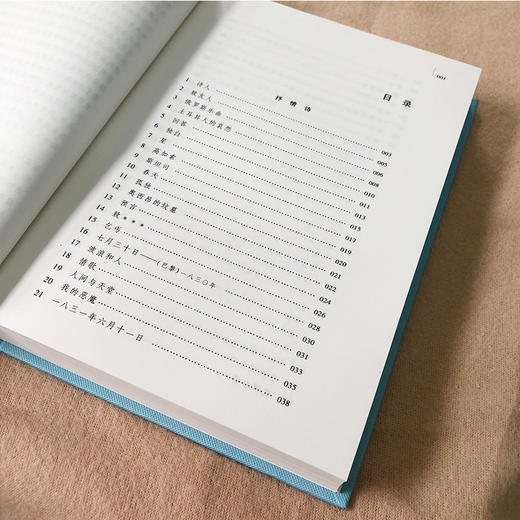 001
目录
抒情诗
1 诗人 003
2 致友人 005
3 俄罗斯乐曲 006
4 土耳其人的哀怨 008
5 回答 010
6 独白 011
7 星 013
8 高加索 015
9 斯坦司 017
10 春天 019
11 孤独
12 奥西昂的坟墓 020
13 预言 022
14 致*** 024
15 乞丐 026
16 七月三十日——(巴黎)一八三〇年 028
17 波浪和人 030
18 情歌 031
19 人间与天堂 033
20 我的恶魔 035
21 一八三一年六月十一日 038